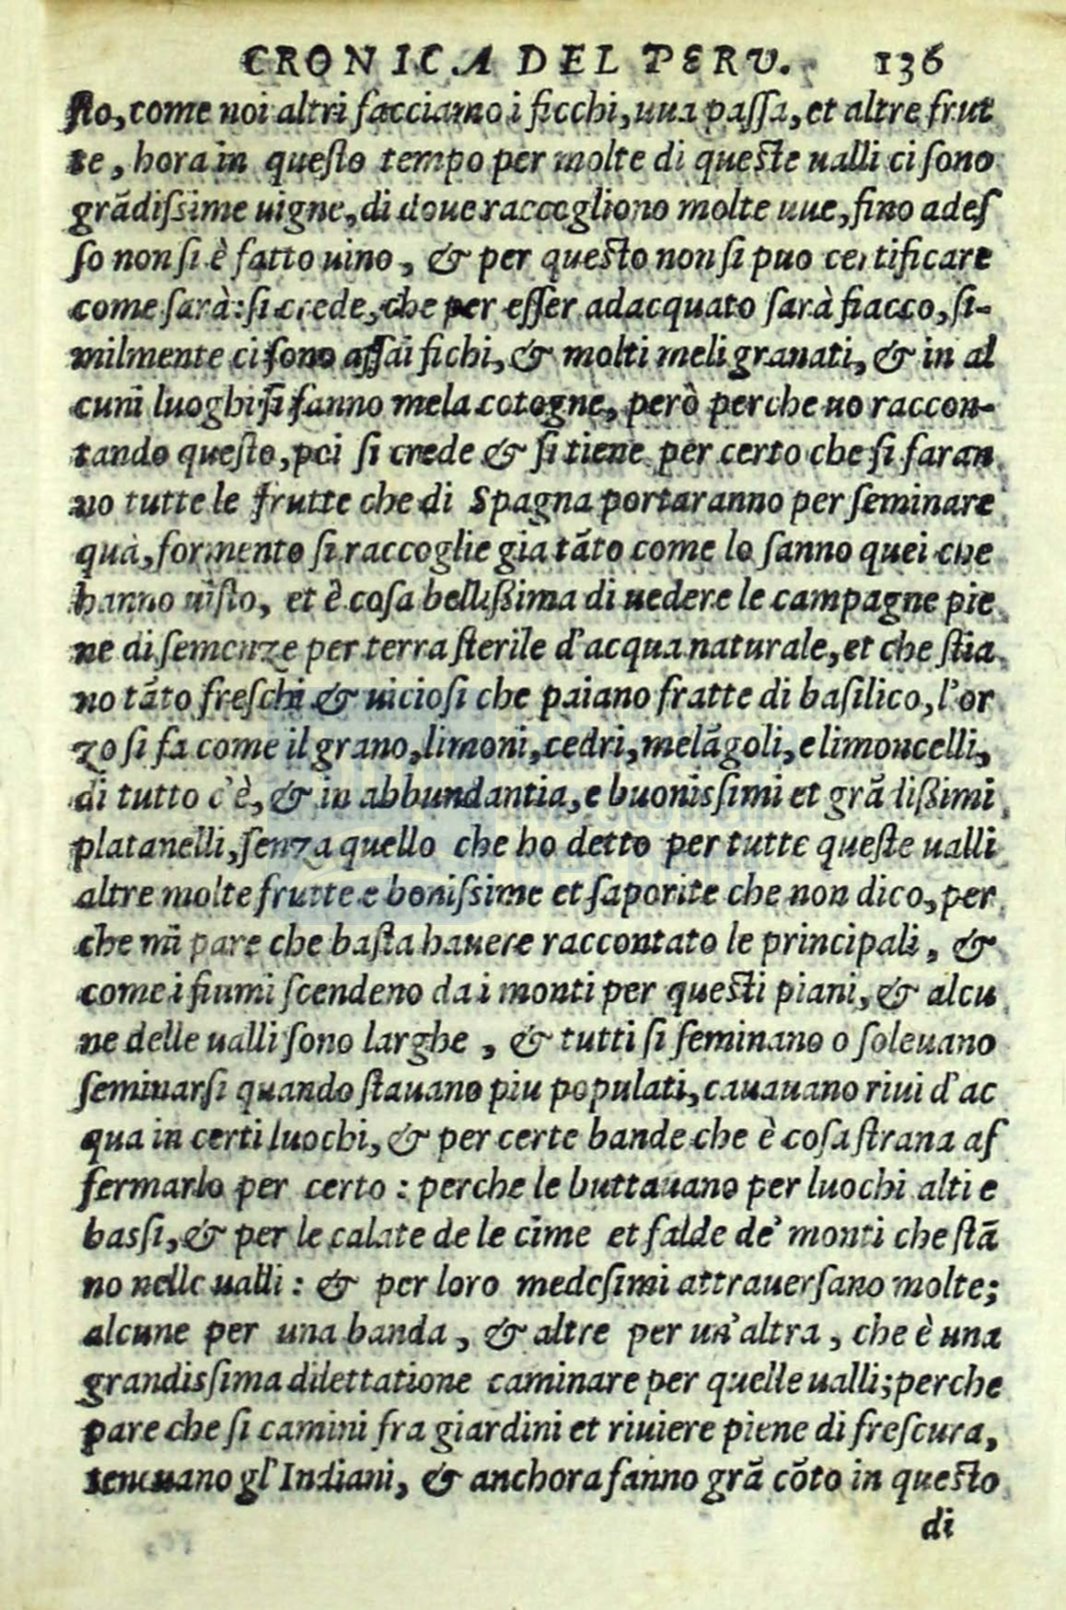 CRONICA DEL PERU. 136
ſto, come noi altri facciamo i ficchi, uua paſſa, et altre frut
te, hora in queſto tempo per molte di queſte ualli ci ſono
grādiſsime uigne, di doue raccogliono molte uue, fino adeſ
ſo non ſi è fatto uino, & per queſto non ſi puo certificare
come ſarà: ſi crede, che per eſſer adacquato ſarà fiacco, ſi-
milmente ci ſono aſſai fichi, & molti meligranati, & in al
cuni luoghi ſi fanno mela cotogne, però perche uo raccon-
tando queſto, poi ſi crede & ſi tiene per certo che ſi faran
no tutte le frutte che di Spagna portaranno per ſeminare
quà, formento ſi raccoglie gia tāto come lo ſanno quei che
hanno uiſto, et è coſa belliſsima di uedere le campagne pie
ne di ſemenze per terra ſterile d'acqua naturale, et che ſtia
no tāto freſchi & uicioſi che paiano fratte di baſilico, l'or
zo ſi fa come il grano, limoni, cedri, melāgoli, e limoncelli,
di tutto c'è, & in abbundantia, e buoniſsimi et grādiſsimi
platanelli, ſenza quello che ho detto per tutte queſte ualli
altre molte frutte e boniſsime et ſaporite che non dico, per
che mi pare che baſta hauere raccontato le principali, &
come i fiumi ſcendeno da i monti per queſti piani, & alcu
ne delle ualli ſono larghe, & tutti ſi ſeminano o ſoleuano
ſeminarſi quando ſtauano piu populati, cauauano riui d'ac
qua in certi luochi, & per certe bande che è coſa ſtrana af
fermarlo per certo: perche le buttauano per luochi alti e
baſsi, & per le calate de le cime et falde de' monti che ſtā
no nelle ualli: & per loro medeſimi attrauerſano molte;
alcune per una banda, & altre per un'altra, che è una
grandiſsima dilettatione caminare per quelle ualli; perche
pare che ſi camini fra giardini et riuiere piene di freſcura,
teneuano gl'Indiani, & anchora fanno grā cōto in queſto
di